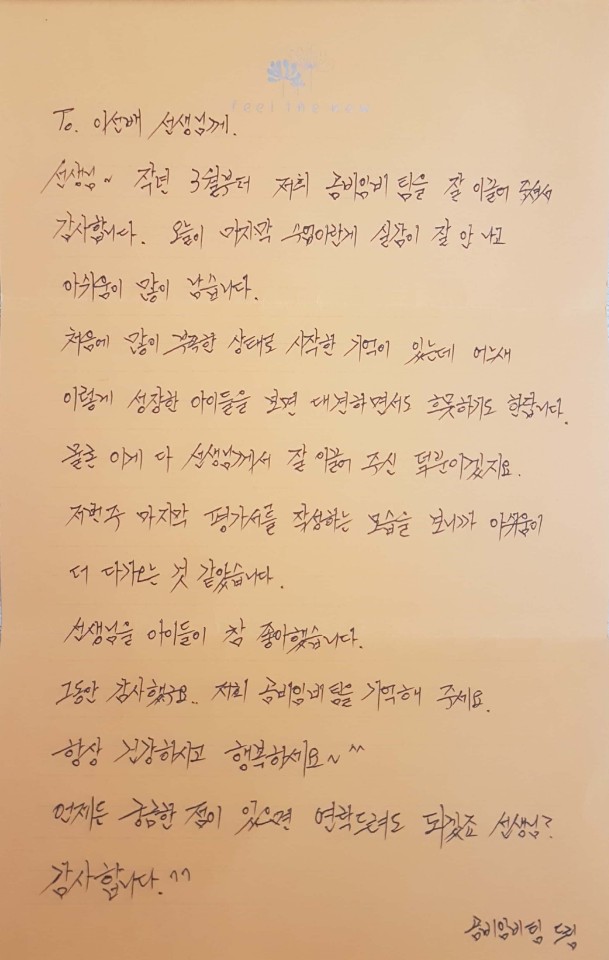 To. 이선배 선생님께.
선생님~ 작년 3월부터 저희 곰비임비 팀을 잘 이끌어 주셔서
감사합니다. 오늘이 마지막 수업이란게 실감이 잘 안 나고
아쉬움이 많이 남습니다.
처음에 많이 부족한 상태로 시작한 기억이 있는데 어느새
이렇게 성장한 아이들을 보면 대견하면서도 흐뭇하기도 한답니다.
물론 이게 다 선생님께서 잘 이끌어 주신 덕분이겠지요.
저번주 마지막 평가서를 작성하는 모습을 보니까 아쉬움이
더 다가오는 것 같았습니다.
선생님을 아이들이 참 좋아했습니다.
그동안 감사했구요.. 저희 곰비임비팀을 기억해 주세요.
항상 건강하시고 행복하세요~^^
언제든 궁금한 점이 있으면 연락드려도 되겠죠 선생님?
감사합니다.^^
곰비임비팀 드림